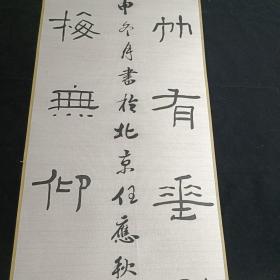 竹有垂
申冬月書於北京任應秋
梅無仰